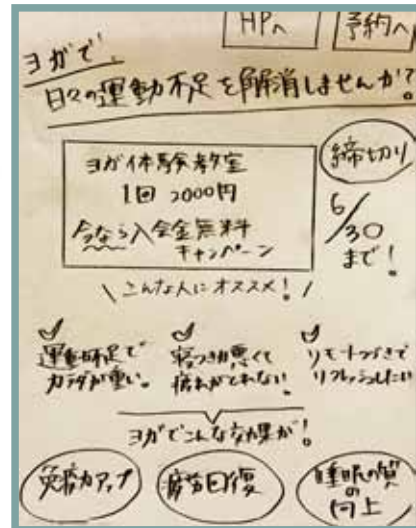 HPへ
予約へ
ヨガで、
日々の運動不足を解消しませんか?
ヨガ体験教室
1回 2000円
今なら入会金無料
キャンペーン
締切り
6/30
まで!
\こんな人にオススメ!/
運動不足で
カラダが重い。
寝つきが悪くて
疲れがとれない。
リモートつづきで
リフレッシュしたい
ヨガでこんな効果が!
免疫力アップ
疲労回復
睡眠の質
の
向上